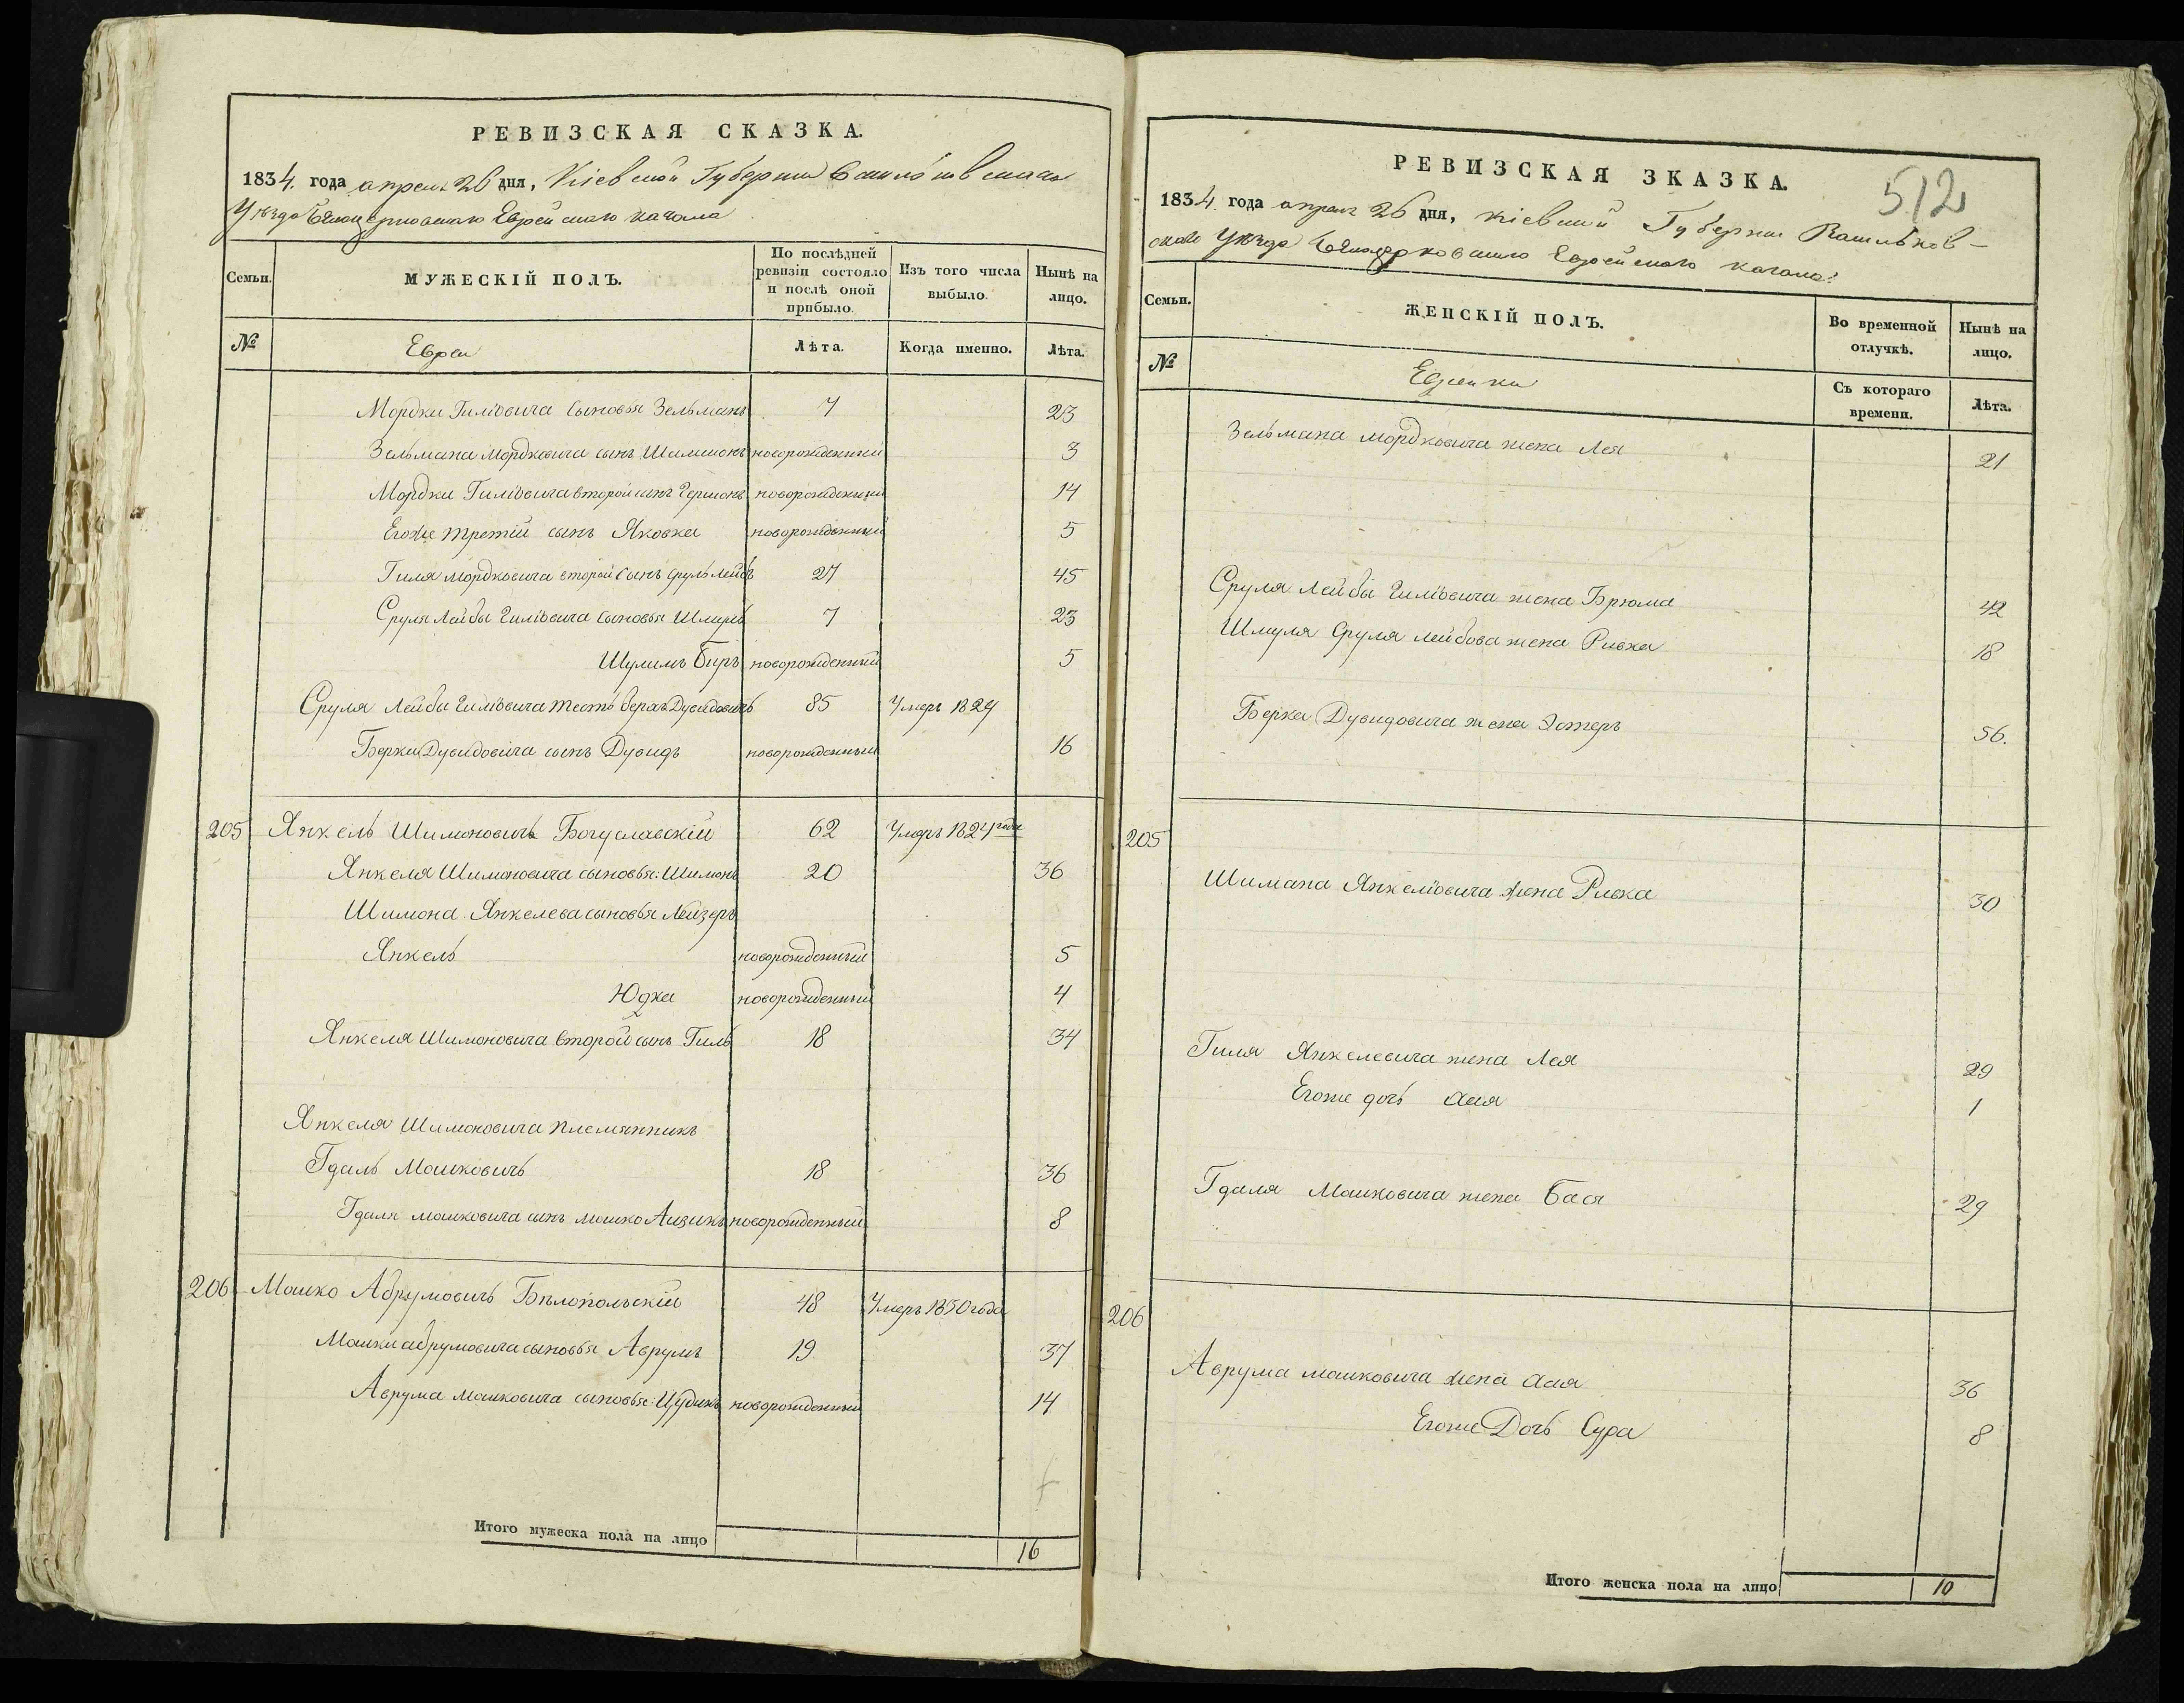 РЕВИЗСКАЯ СКАЗКА.
1834. года апреля 26 дня, Кіевской Губерніи Василковскаго
Уѣзда Бѣлоцерковскаго Еврейскаго кагала
Семьи.
МУЖЕСКІЙ ПОЛЪ.
По послѣдней ревизіи состояло и послѣ оной прибыло.
Изъ того числа выбыло.
Нынѣ на лицо.
№
Евреи
Лѣта.
Когда именно.
Лѣта.
Мордки Гиліовича сыновья Зельманъ 7 23
Зельмана Мордковича сынъ Шимшонъ новорожденный 3
Мордки Гиліовича второй сынъ Гершонъ новорожденный 14
Егоже третій сынъ Яковка новорожденный 5
Гиля Мордковича второй сынъ Сруль Лейбъ 27 45
Сруля Лейбы Гиліовича сыновья Шмуль 7 23
Шулимъ Беръ новорожденный 5
Сруля Лейбы Гиліовича тесть Берка Дувидовичъ 85 Умеръ 1829
Берки Дувидовича сынъ Дувидъ новорожденный 16
205 Янкель Шимоновичъ Богуславскій 62 Умеръ 1824 года
Янкеля Шимоновича сыновья: Шимонъ 20 36
Шимона Янкелева сыновья Лейзеръ
Янкель новорожденный 5
Юдка новорожденный 4
Янкеля Шимоновича второй сынъ Гиль 18 34
Янкеля Шимоновича племянникъ
Гдаль Мошковичъ 18 36
Гдаля Мошковича сынъ Мошко Аизикъ новорожденный 8
206 Мошко Абрумовичъ Бѣлопольскій 48 Умеръ 1830 года
Мошки абрумовича сыновья Аврумъ 19 37
Аврума Мошковича сыновья: новорожденный 14
Итого мужеска пола на лицо 16
РЕВИЗСКАЯ ЗКАЗКА.
512
1834. года апреля 26 дня, Кіевской Губерніи Васильков-
скаго Уѣзда Бѣлоцерковскаго Еврейскаго кагала
Семьи.
ЖЕНСКІЙ ПОЛЪ.
Во временной отлучкѣ.
Нынѣ на лицо.
№
Еврейки
Съ котораго времени.
Лѣта.
Зельмана Мордковича жена Лея 21
Сруля Лейбы Гиліовича жена Брюма 42
Шмуля Сруля Лейбова жена Ривка 18
Берка Дувидовича жена Эстеръ 56.
205
Шимана Янкеліовича жена Ривка 30
Гиля Янкелевича жена Лея 29
Егоже дочь Хая 1
Гдаля Мошковича жена Бася 29
206
Аврума мошковича жена Хая 36
Егоже Дочь Сура 8
Итого женска пола на лицо 10